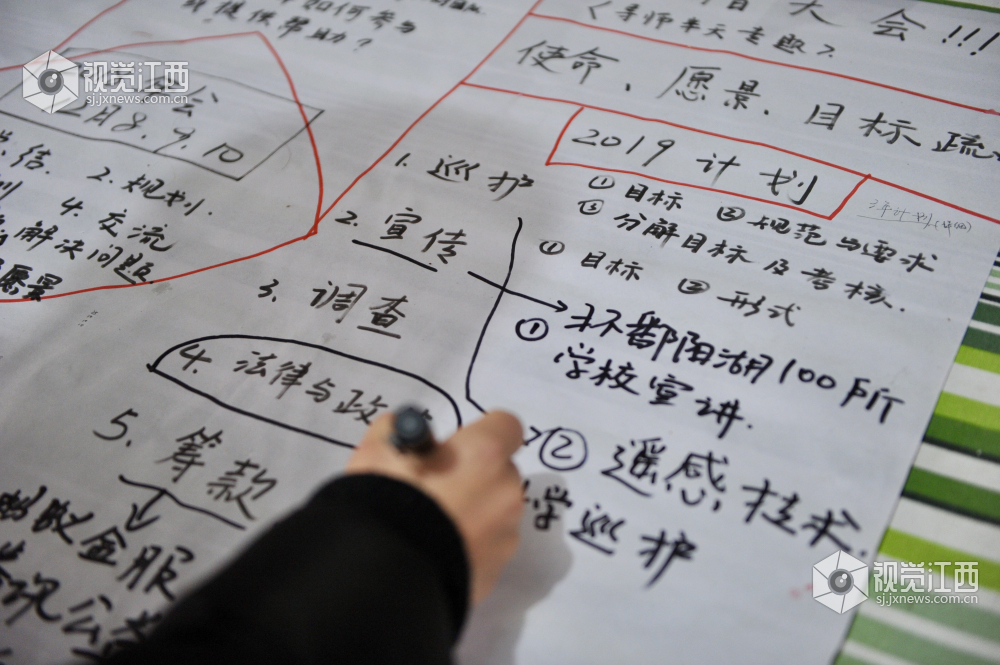 如何参与
或提供帮助？
大会!!!
使命、愿景、目标
2019 计划
①目标 ②规范与要求
分解目标及考核.
①目标 ②形式
3年计划
8.9.10
总结. 2.规划.
4.交流
解决问题.
愿景
1. 巡护
2. 宣传
3. 调查
4. 法律与政
5. 筹款
蚂蚁金服
腾讯公益
①环鄱阳湖100所
学校宣讲.
②遥感技术.
学巡护
视觉江西
sj.jxnews.com.cn
视觉江西
sj.jxnews.com.cn